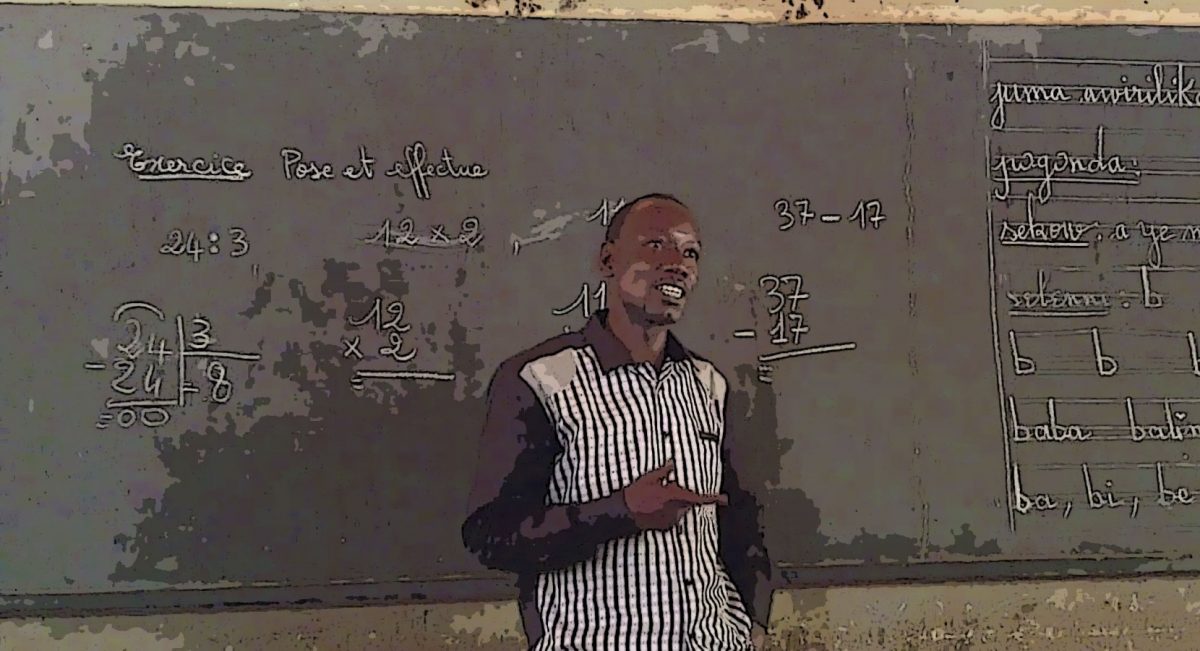 Exercice Pose et effectue
24:3
12 x 2
11
37-17
24 3
- 24 8
= 00
12
x 2
=
11
37
- 17
=
juma
jogonda:
sekow: a ye
selenni: b
b b
baba
ba, bi, be